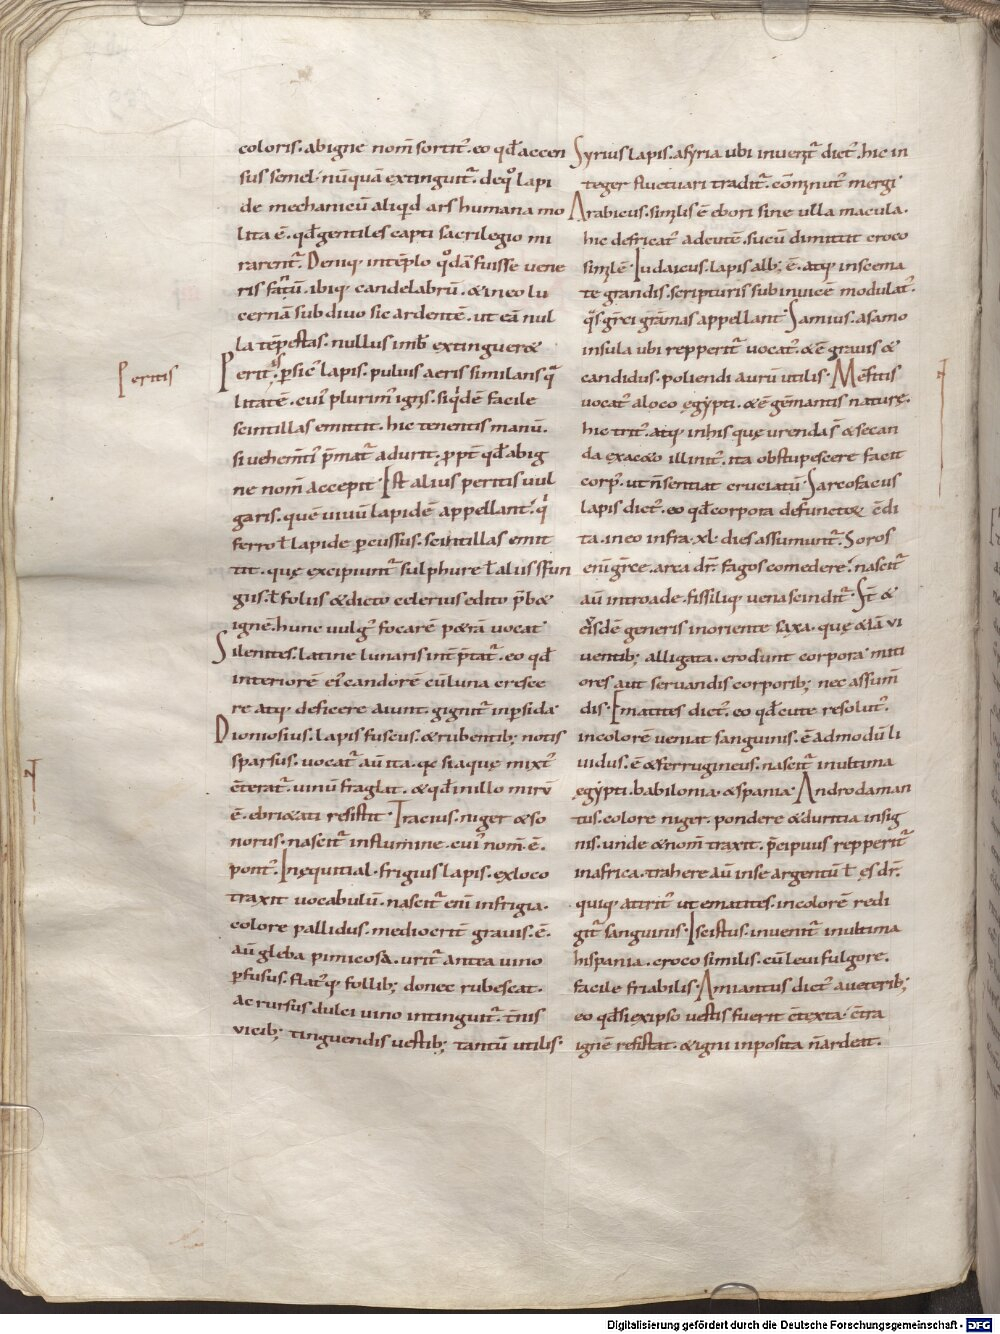 coloris. abigne nom̄ sortit᷑. eo qđ accen
sus semel nūquā extinguit᷑. de qͦ lapi
de mechanicū aliqid ars humana mo
lita ē. qđ gentiles capti sacrilegio mi
rarent᷑. Deniq; intēplo qͦdā fuisse vene
ris fanū. ibiq; candelabrū. & in eo lu
cernā sub divo sic ardentē. ut eā nul
la tēpestas. nullus imb̄ extinguer&
Perit᷑. ꝑsic᷑ lapis. puluis aeris similans q̄
litatē. cui᷑ plurim᷑ ignis. siqdē facile
scintillas emittit. hic tenentis manū.
si uehem̄ti᷑ p̄mat᷑ adurit. ꝓpt̄ qđ ab ig
ne nom̄ accepit. Est alius peritis uul
garis. quē uiuū lapidē appellant. qi
ferro ł lapide ꝑcussus. scintillas emit
tit. quę excipiunt᷑ sulphure ł aliis sfun
giis. ł foliis & dicto celerius edito p̄b&
ignē. hunc uulg᷑ focarē p&rā vocat
Silenites. latine lunaris int̄p̄tat᷑. eo qđ
interiorē ei᷑ candorē cū luna cresce
re atq; deficere aiunt. gignit᷑ in ꝑsida
Dionosius. lapis fuscus. & rubentib; notis
sparsus. vocat᷑ aū ita. qe si aquę mixt᷑
c̄terat᷑. uinū fraglat. & qđ in illo mirū
ē. ebri&ati resistit. Tracius. niger & so
norus. nascit᷑ in flumine. cui᷑ nom̄ ē.
pont᷑. In equitial. frigius lapis. ex loco
traxit uocabulū. nascit᷑ eni in frigia.
colore pallidus. mediocrit̄ grauis. ē.
aū gleba pimicosa. urit᷑ antea uino
ꝑfusus. flat᷑ q; follib; donec rubescat.
ac rursus dulci vino intinguit᷑. t̄nis
vicib; tinguendis uestib; tantū utilis.
Peritis
Syrius lapis. asyria ubi invenit᷑ dict᷑. hic in
teger fluctuari tradit᷑. cōminut᷑ mergi
Arabicus. similis ē ebori sine ulla macula.
hic defricat᷑ ad eutē. sucū dimittit croco
similē. Iudaicus. lapis alb; ē. atq; in scema
te grandis. scripturis sub invicē modulat᷑.
qs greci gramas appellant. Samius. a samo
insula ubi repperit᷑ vocat᷑. & ē grauis &
candidus. poliendi aurū utilis. Mefitis
vocat᷑ a loco ęgypti. & ē gēmantis naturę.
hic trit᷑. atq; in his quę urenda s̄ & secan
da ex ac&o illinit᷑. ita obstupescere facit
corp᷑. ut n̄ sentiat cruciatū. Sarcofacus
lapis dict᷑. eo qđ corpora defunctoꝝ cōdi
ta. in eo infra. xl. dies assumunt᷑. Soros
eni grece. arca dr̄. fagos comedere. nascit᷑
aū in troade. fissiliq; vena scindit᷑. St̄ &
ei᷑sdē generis in oriente saxa. quę &iā vi
uentib; alligata. erodunt corpora. miti
ores aut seruandis corporib; nec assum̄
dis. Ematites dict᷑. eo qđ cute resolut᷑.
in colorē veniat sanguinis. ē admodū li
uidus. ē & ferrugineus. nascit᷑ in ultima
ęgypti. babilonia. & spania. Androdaman
tus. colore niger. pondere & duritia insig
nis. unde & nom̄ traxit. p̄cipuus repperit᷑
in africa. trahere aū in se argentū ł ęs dr̄.
quiq; attrit᷑ ut ematites. in colorē redi
git᷑ sanguinis. Iscistus. invenit᷑ in ultima
hispania. croco similis. cū leui fulgore.
facile friabilis. Amiantus dict᷑ a ueterib;
eo qđ si ex ipso uestis fuerit c̄texta. c̄tra
ignē resistat. & igni inposita n̄ ardeat.
Digitalisierung gefördert durch die Deutsche Forschungsgemeinschaft - DFG